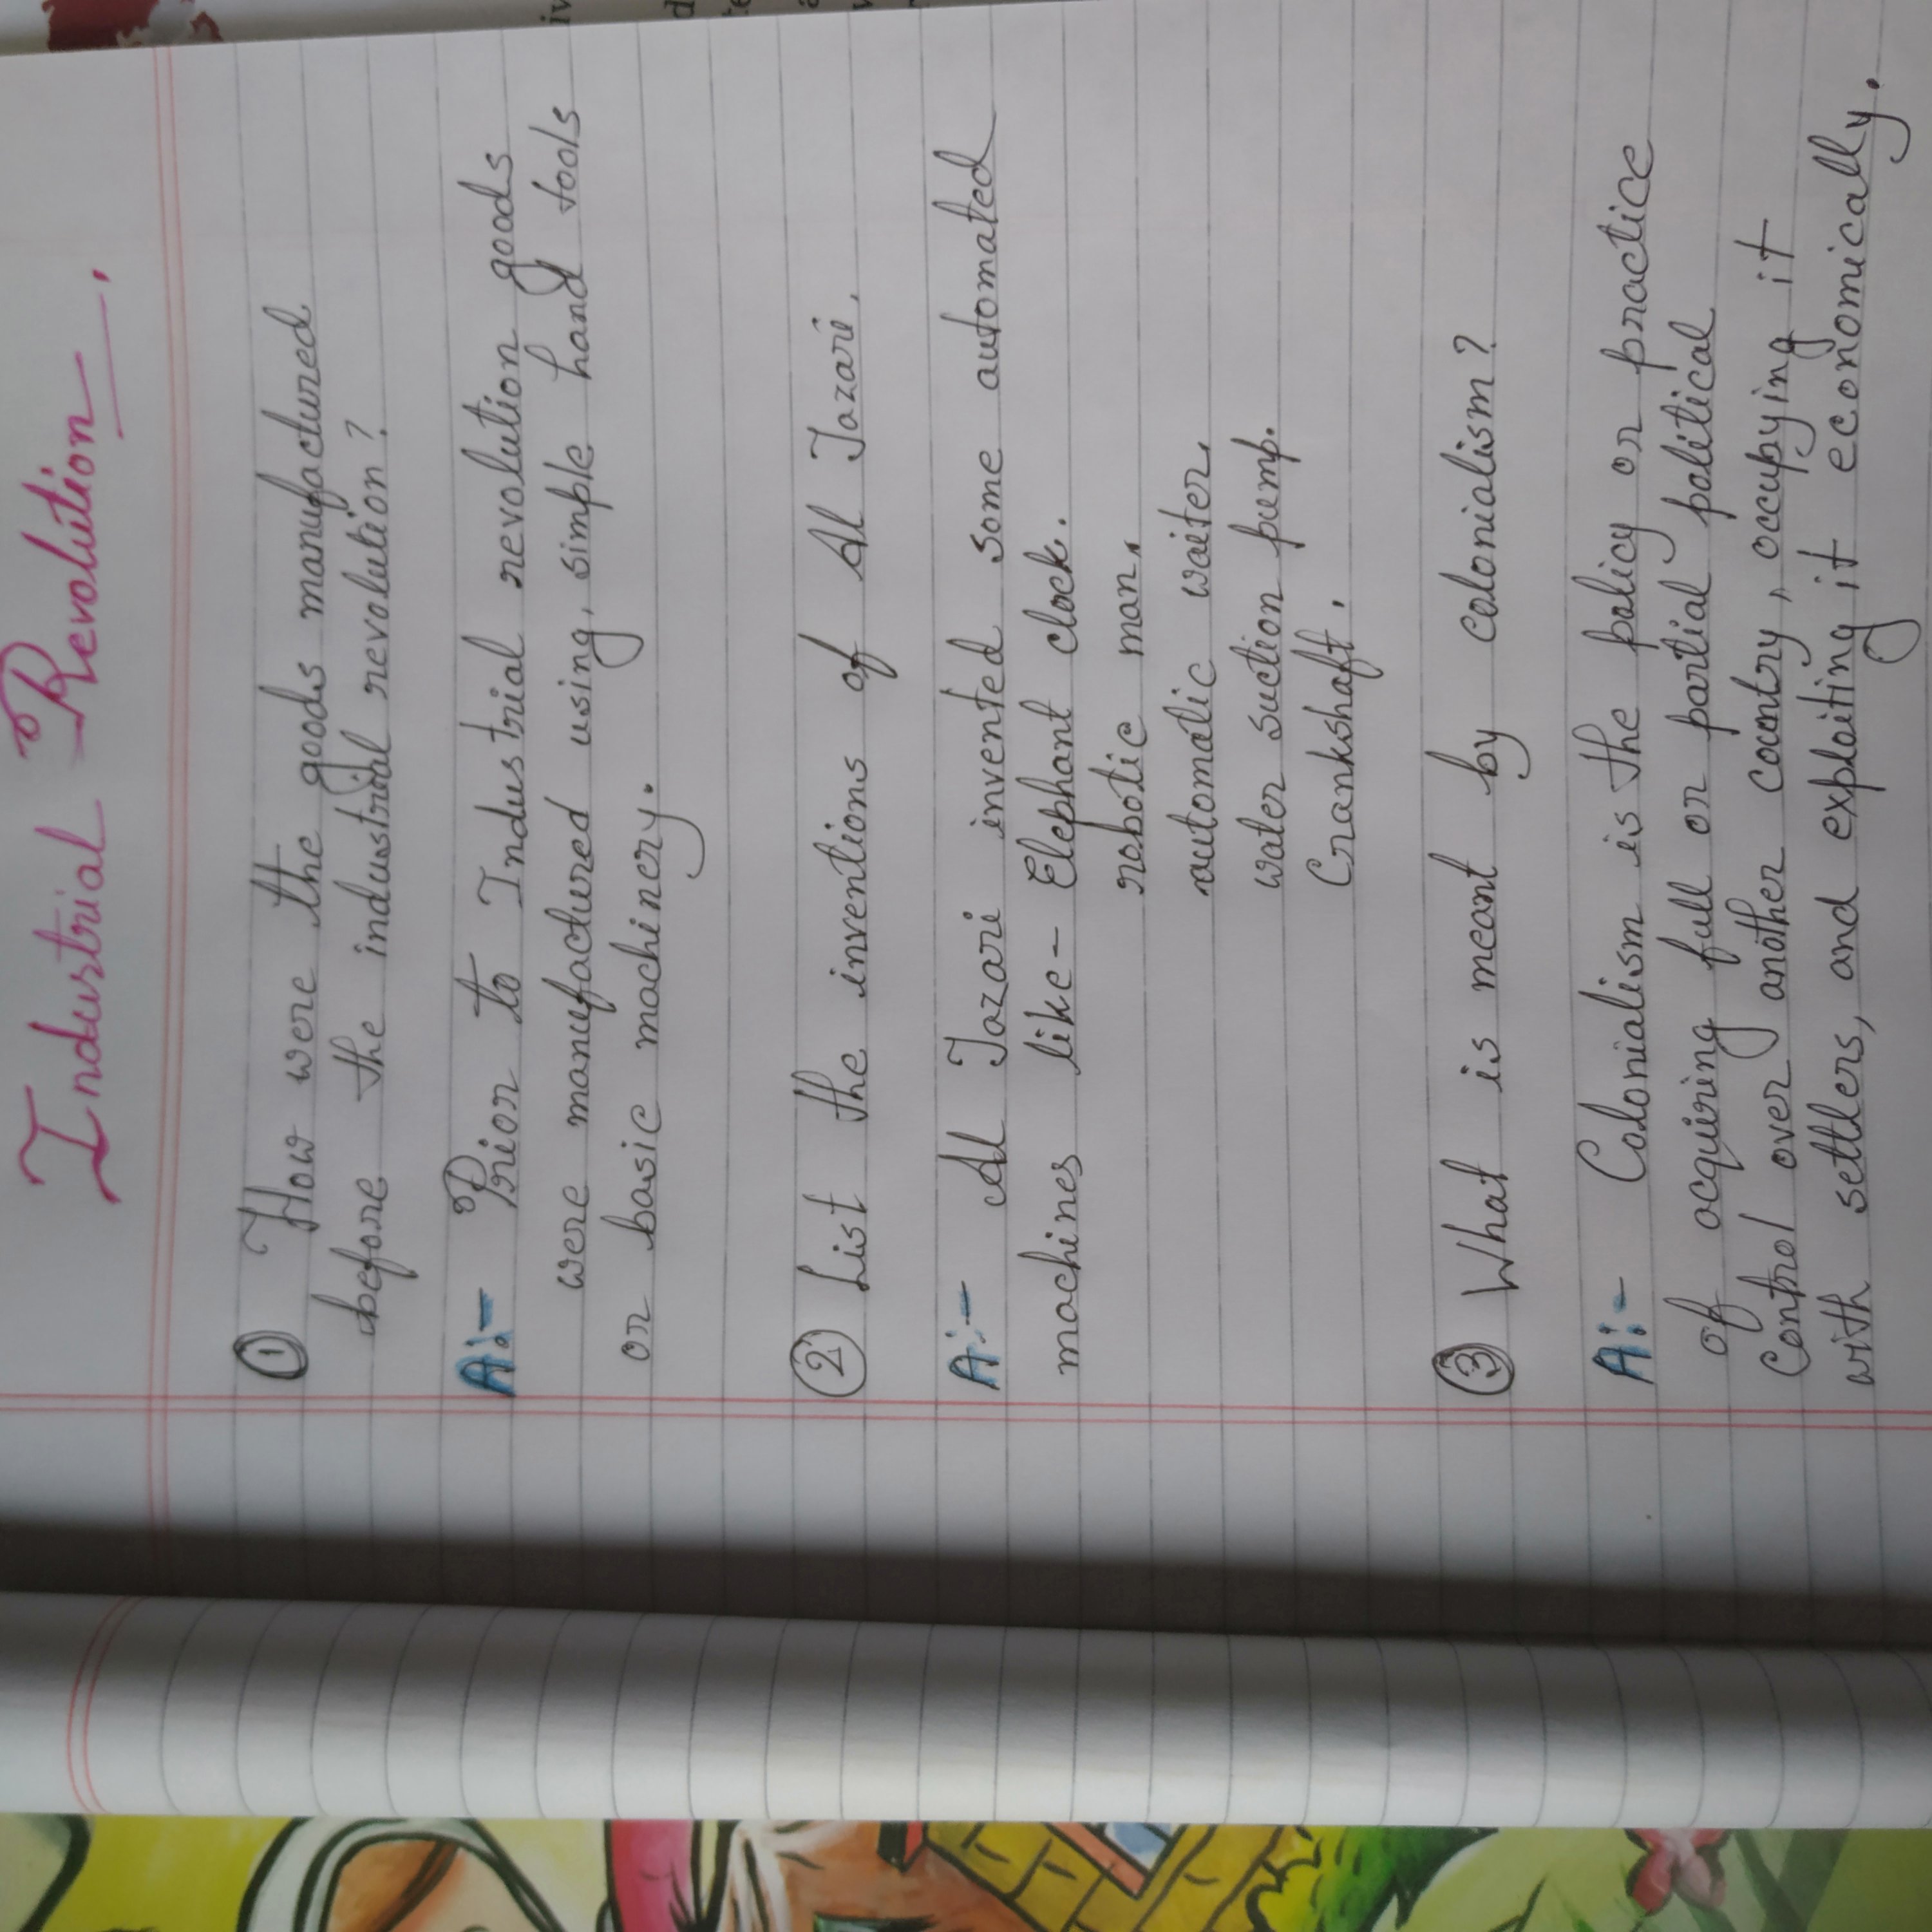 Industrial Revolution.
① How were the goods manufactured
before the industrial revolution?
A:- Prior to Industrial revolution goods
were manufactured using, simple hand tools
or basic machinery.
② List the inventions of Al Jazari.
A:- Al Jazari invented some automated
machines like- Elephant clock.
robotic man.
automatic waiter.
water suction pump.
Crankshaft.
③ What is meant by colonialism?
A:- Colonialism is the policy or practice
of acquiring full or partial political
control over another country, occupying it
with settlers, and exploiting it economically.